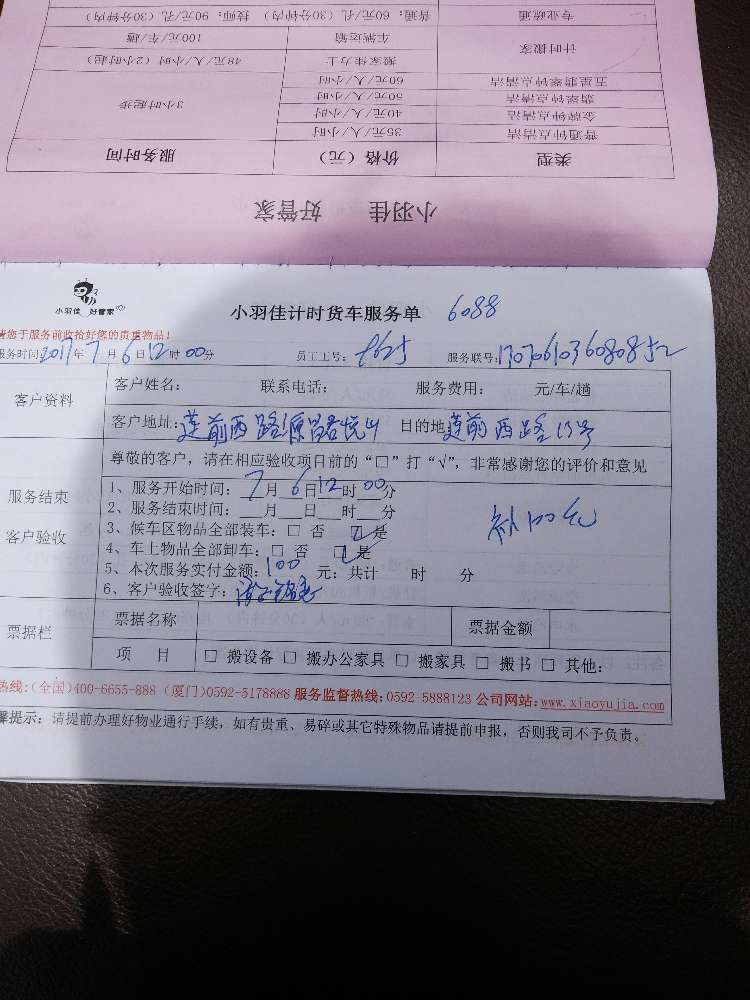 专业疏通 普通：60元/孔（30分钟内） 技师：90元/孔（30分钟内）
计时搬家 车辆运输 100元/车/趟
搬家佳力士 48元/人/小时（2小时起）
五星翡翠钟点清洁 60元/人/小时
翡翠钟点清洁 50元/人/小时 3小时起步
金牌钟点清洁 40元/人/小时
普通钟点清洁 35元/人/小时
类型 价格（元） 服务时间
小羽佳 好管家
小羽佳 好管家
小羽佳计时货车服务单 6088
请您于服务前收拾好您的贵重物品！
服务时间2017年7月6日12时00分 员工工号： 服务联号：
客户资料 客户姓名： 联系电话： 服务费用： 元/车/趟
客户地址：莲前西路源昌君悦山 目的地莲前西路
尊敬的客户，请在相应验收项目前的“□”打“√”，非常感谢您的评价和意见
服务结束
客户验收
1、服务开始时间：7月6日12时00分
2、服务结束时间：__月__日__时__分
3、候车区物品全部装车：□ 否 ☑是
4、车上物品全部卸车：□ 否 ☑是
5、本次服务实付金额：100元：共计 时 分
6、客户验收签字：
补100元
票据栏 票据名称 票据金额
项 目 □ 搬设备 □ 搬办公家具 □ 搬家具 □ 搬书 □ 其他：
热线：(全国)400-6655-888 (厦门)0592-5178888 服务监督热线：0592-5888123 公司网站：www.xiaoyujia.com
馨提示：请提前办理好物业通行手续，如有贵重、易碎或其它特殊物品请提前申报，否则我司不予负责。